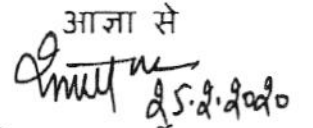 आज्ञा से
25.2.2020